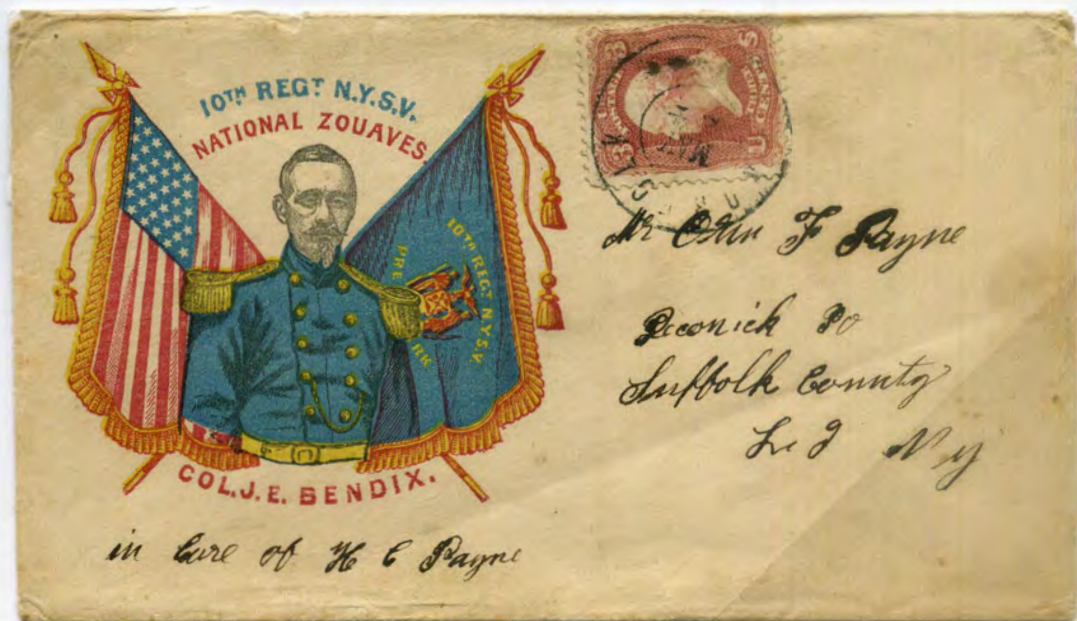 10TH REGT N.Y.S.V.
NATIONAL ZOUAVES.
10TH REGT N.Y.S.V.
PRE RK
COL. J. E. BENDIX.
Mr F Payne
Peconick Po
Suffolk County
L I N Y
in Care of H C Payne
3 CENTS
U
MAY